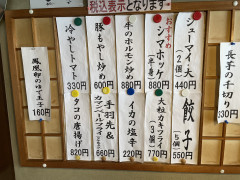 税込表示となります
長芋の千切り
330円
シューマイ・大
(2個)
440円
おすすめ
シマホッケ
(半身)
880円
牛のホルモン炒め
880円
豚もやし炒め
600円
冷やしトマト
330円
鳳凰卵のゆで玉子
160円
餃子
5個
550円
大粒カキフライ
(3個)
770円
イカの塩辛
220円
手羽先&
660円
タコの唐揚げ
820円